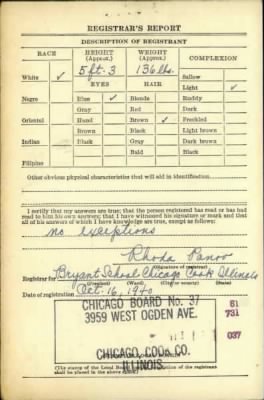 REGISTRAR'S REPORT
DESCRIPTION OF REGISTRANT
RACE HEIGHT (Approx.) WEIGHT (Approx.) COMPLEXION
White ✓ 5 ft-3 136 lbs. Sallow
EYES HAIR Light ✓
Negro Blue ✓ Blonde Ruddy
Gray Red Dark
Oriental Hazel Brown ✓ Freckled
Brown Black Light brown
Indian Black Gray Dark brown
Bald Black
Filipino
Other obvious physical characteristics that will aid in identification
I certify that my answers are true; that the person registered has read or has had
read to him his own answers; that I have witnessed his signature or mark and that
all of his answers of which I have knowledge are true, except as follows:
no exceptions
Rhoda
(Signature of registrar)
Registrar for Bryant School Chicago Cook Illinois
(Precinct) (Ward) (City or county) (State)
Date of registration Oct. 16, 1940
CHICAGO BOARD No. 37 61
3959 WEST OGDEN AVE. 731
037
CHICAGO, COOK CO.
ILLINOIS
(The stamp of the Local Board of the registrant
shall be placed in the above space.)